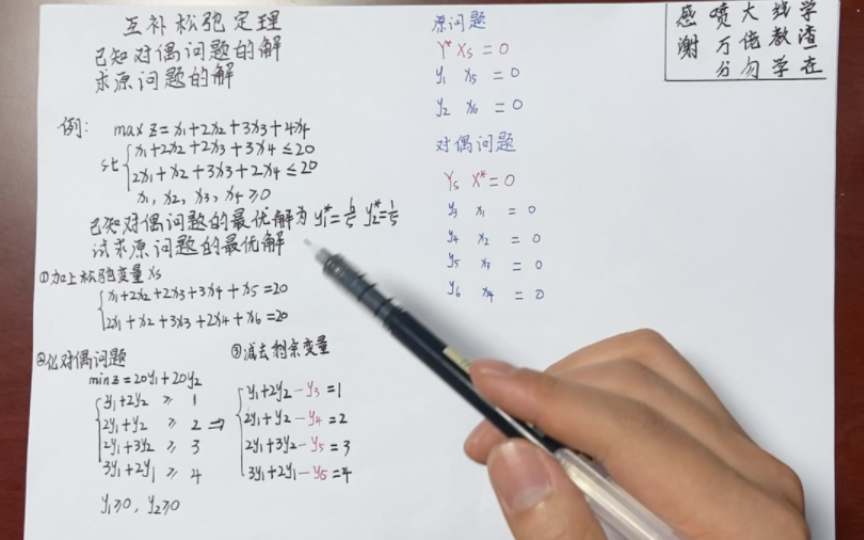 互补松弛定理
已知对偶问题的解
求原问题的解
例:
max z = x1+2x2+3x3+4x4
st
x1+2x2+2x3+3x4 ≤ 20
2x1+x2+3x3+2x4 ≤ 20
x1, x2, x3, x4 ≥ 0
已知对偶问题的最优解为 y1*=6/5 y2*=1/5
试求原问题的最优解
①加上松弛变量 Xs
x1+2x2+2x3+3x4+x5=20
2x1+x2+3x3+2x4+x6=20
②化对偶问题
min z = 20y1+20y2
y1+2y2 ≥ 1
2y1+y2 ≥ 2 ⇒
2y1+3y2 ≥ 3
3y1+2y1 ≥ 4
y1≥0, y2≥0
③减去剩余变量
y1+2y2-y3=1
2y1+y2-y4=2
2y1+3y2-y5=3
3y1+2y1-y6=4
原问题
Y* Xs = 0
y1 x5 = 0
y2 x6 = 0
对偶问题
Ys X* = 0
y3 x1 = 0
y4 x2 = 0
y5 x3 = 0
y6 x4 = 0
感 喷 大 线 学
谢 万 佬 教 渣
分 勿 学 在